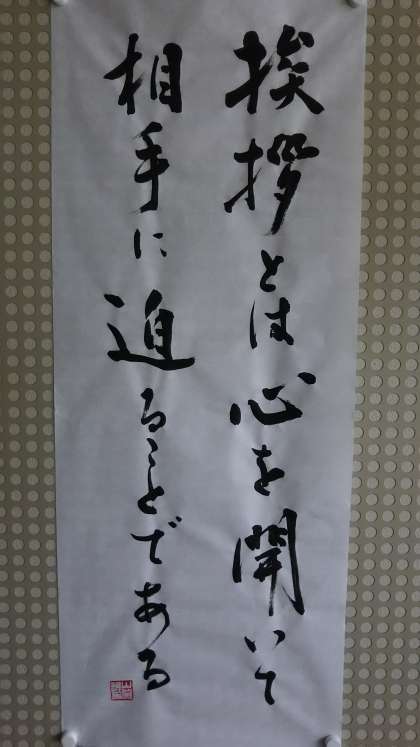 挨拶とは心を開いて
相手に迫ることである